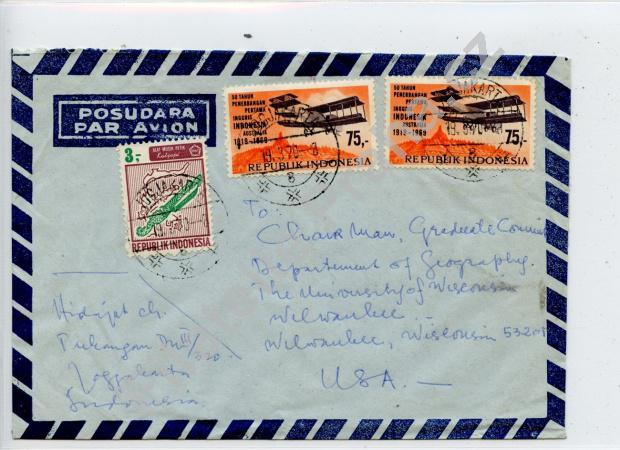 POSUDARA
PAR AVION
50 TAHUN
PENERBANGAN
PERTAMA
INGGRIS
INDONESIA
AUSTRALIA
1919-1969
75,-
REPUBLIK INDONESIA
50 TAHUN
PENERBANGAN
PERTAMA
INGGRIS
INDONESIA
AUSTRALIA
1919-1969
75,-
REPUBLIK INDONESIA
3,-
ALAT MUSIK PETIK
REPUBLIK INDONESIA
To:
Chairman, Graduate
Departement of Geography.
The University of Wisconsin
Wilwaukee.
Wilwaukee, Wisconsin
USA. —
Hidajat ch.
Jogjakarta
Indonesia